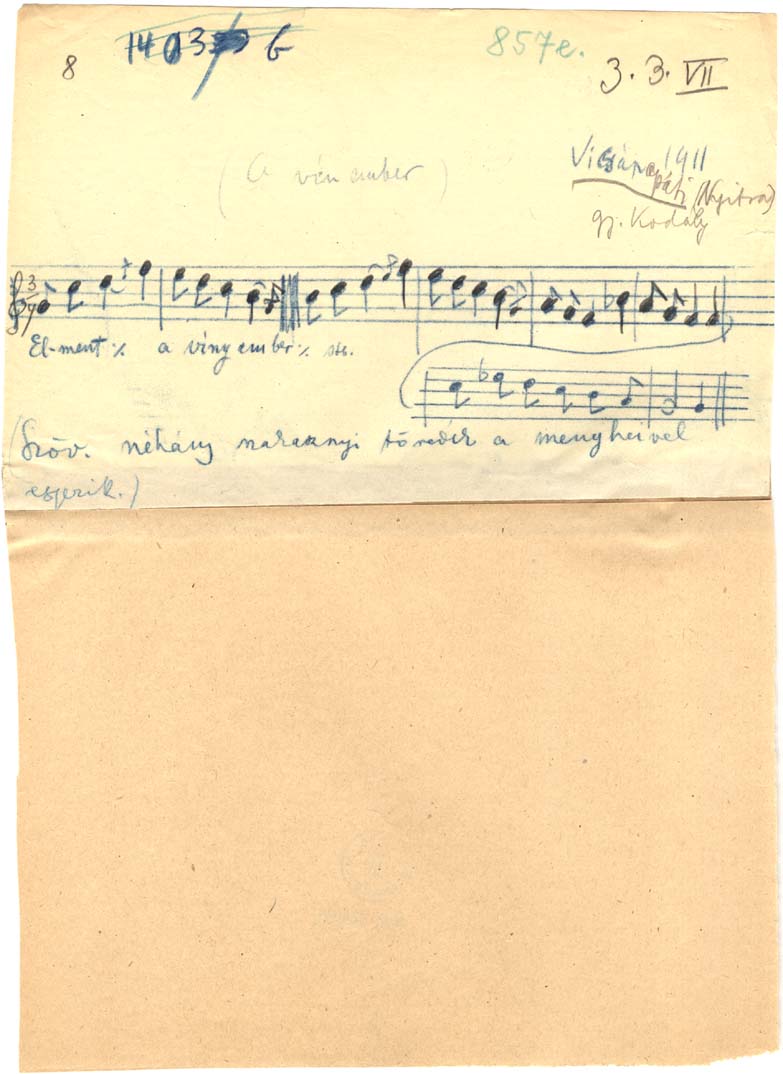 8
1403 b
857e.
3. 3. VII
(A vén ember)
Vicsápapáti 1911
(Nyitra)
gy. Kodály
3/4
El-ment ٪ a víny ember ٪ stb.
(Szöv. néhány szakasznyi töredék a menyheivel
egyezik.)